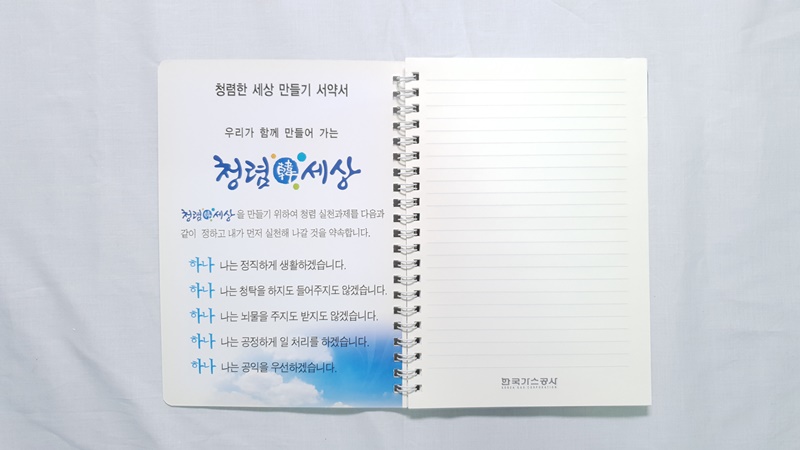 청렴한 세상 만들기 서약서
우리가 함께 만들어 가는
청렴韓세상
청렴韓세상을 만들기 위하여 청렴 실천과제를 다음과
같이 정하고 내가 먼저 실천해 나갈 것을 약속합니다.
하나 나는 정직하게 생활하겠습니다.
하나 나는 청탁을 하지도 들어주지도 않겠습니다.
하나 나는 뇌물을 주지도 받지도 않겠습니다.
하나 나는 공정하게 일 처리를 하겠습니다.
하나 나는 공익을 우선하겠습니다.
한국가스공사
KOREA GAS CORPORATION